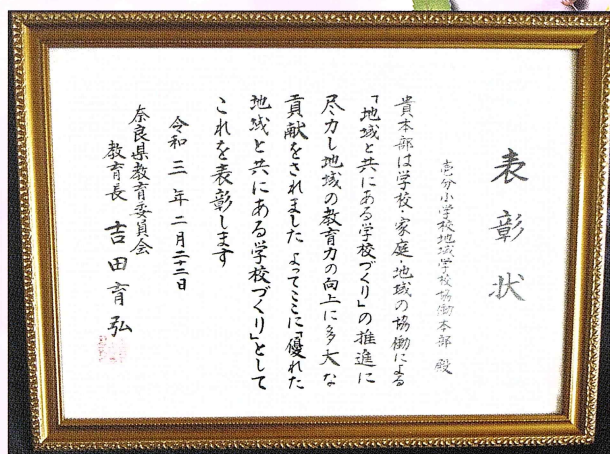 表彰状
壱分小学校地域学校協働本部 殿
貴本部は学校・家庭・地域の協働による
「地域と共にある学校づくり」の推進に
尽力し地域の教育力の向上に多大な
貢献をされました よってここに「優れた
地域と共にある学校づくり」として
これを表彰します
令和三年二月二十二日
奈良県教育委員会
教育長 吉田育弘